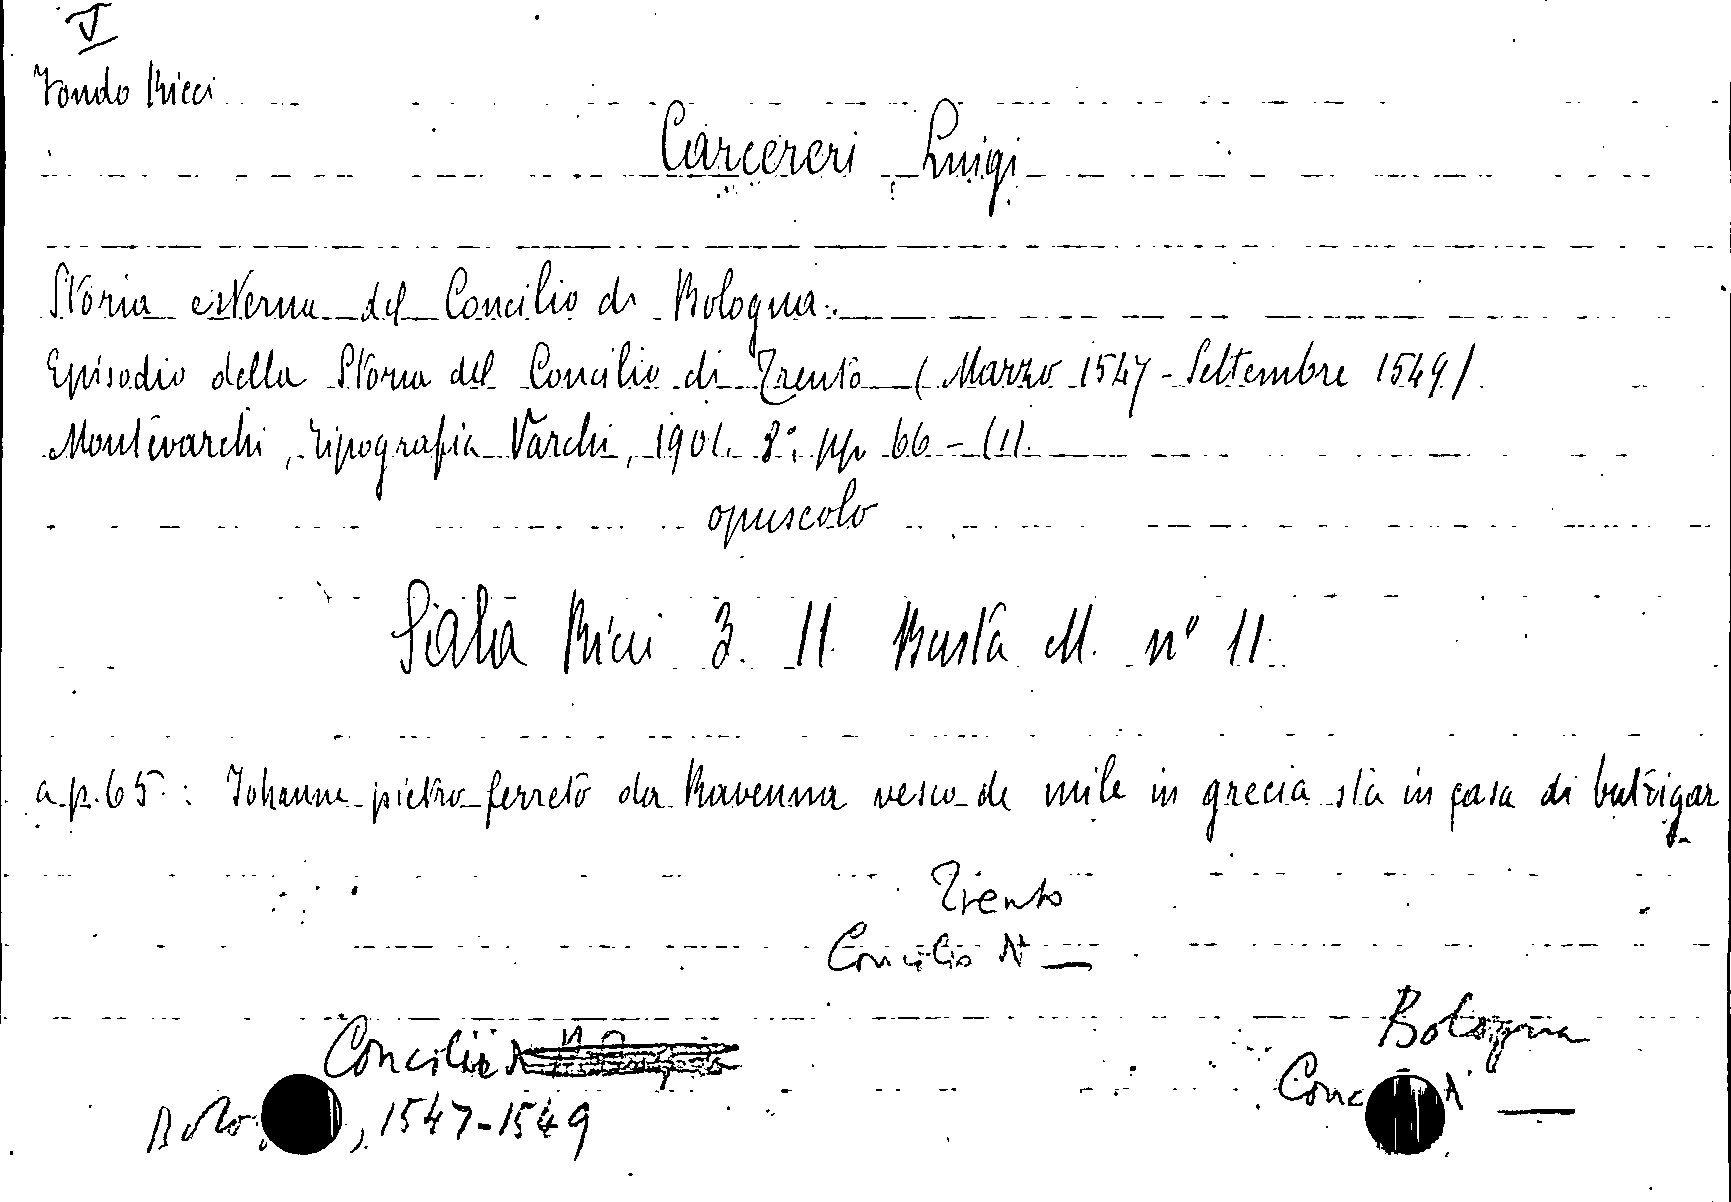 V
Fondo Ricci
Carcereri Luigi
Storia esterna del Concilio di Bologna.
Episodio della Storia del Concilio di Trento (Marzo 1547 - Settembre 1549)
Montevarchi, Tipografia Varchi, 1901. 8°. pp. 66 - (1).
opuscolo
Sala Ricci 3. 11 Busta M. n° 11.
a p. 65: Iohanne pietro ferreto da Ravenna vesco de mile in grecia sta in casa di butrigar
Trento
Concilio di —
Concilio di
Bolo , 1547-1549
Bologna
Conc di —